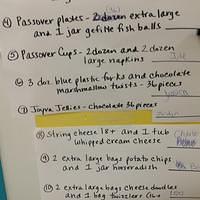 ④ Passover plates - 2 dozen extra large
and 1 jar gefilte fish balls
⑤ Passover Cups - 2 dozen and 2 dozen
large napkins
⑥ 3 doz. blue plastic forks and chocolate
marshmallow twists - 36 pieces
⑦ Joyva Jellies - chocolate 36 pieces
⑧ String cheese 18+ and 1 tub
whipped cream cheese
⑨ 2 extra large bags potato chips
and 1 jar horseradish
⑩ 2 extra large bags cheese doodles
and 1 bag twizzlers